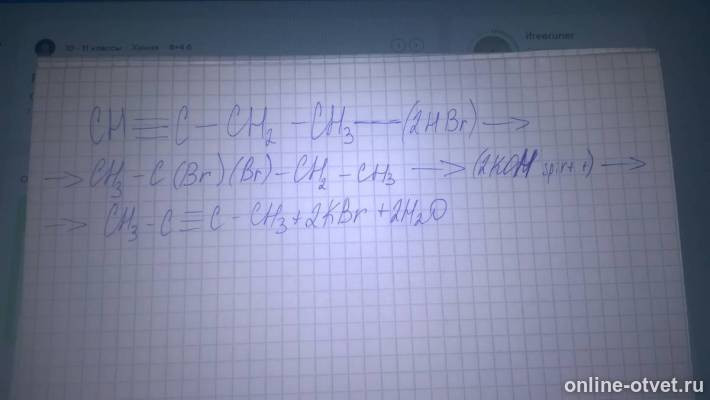 10 - 11 классы Химия 8+4 б
CH≡C-CH₂-CH₃-(2HBr)→
→CH₃-C(Br)(Br)-CH₂-CH₃→(2KOH spirt, t)→
→CH₃-C≡C-CH₃+2KBr+2H₂O
online-otvet.ru